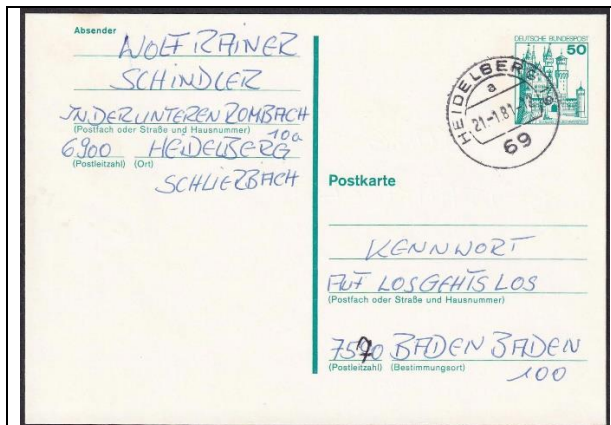 Absender
WOLF RAINER
SCHINDLER
IN DER UNTEREN ROMBACH
(Postfach oder Straße und Hausnummer)
10a
6900 HEIDELBERG
(Postleitzahl) (Ort)
SCHLIERBACH
DEUTSCHE BUNDESPOST
50
HEIDELBERG
a
21-1.81
69
Postkarte
KENNWORT
AUF LOS GEHTS LOS
(Postfach oder Straße und Hausnummer)
7570 BADEN BADEN
(Postleitzahl) (Bestimmungsort)
100